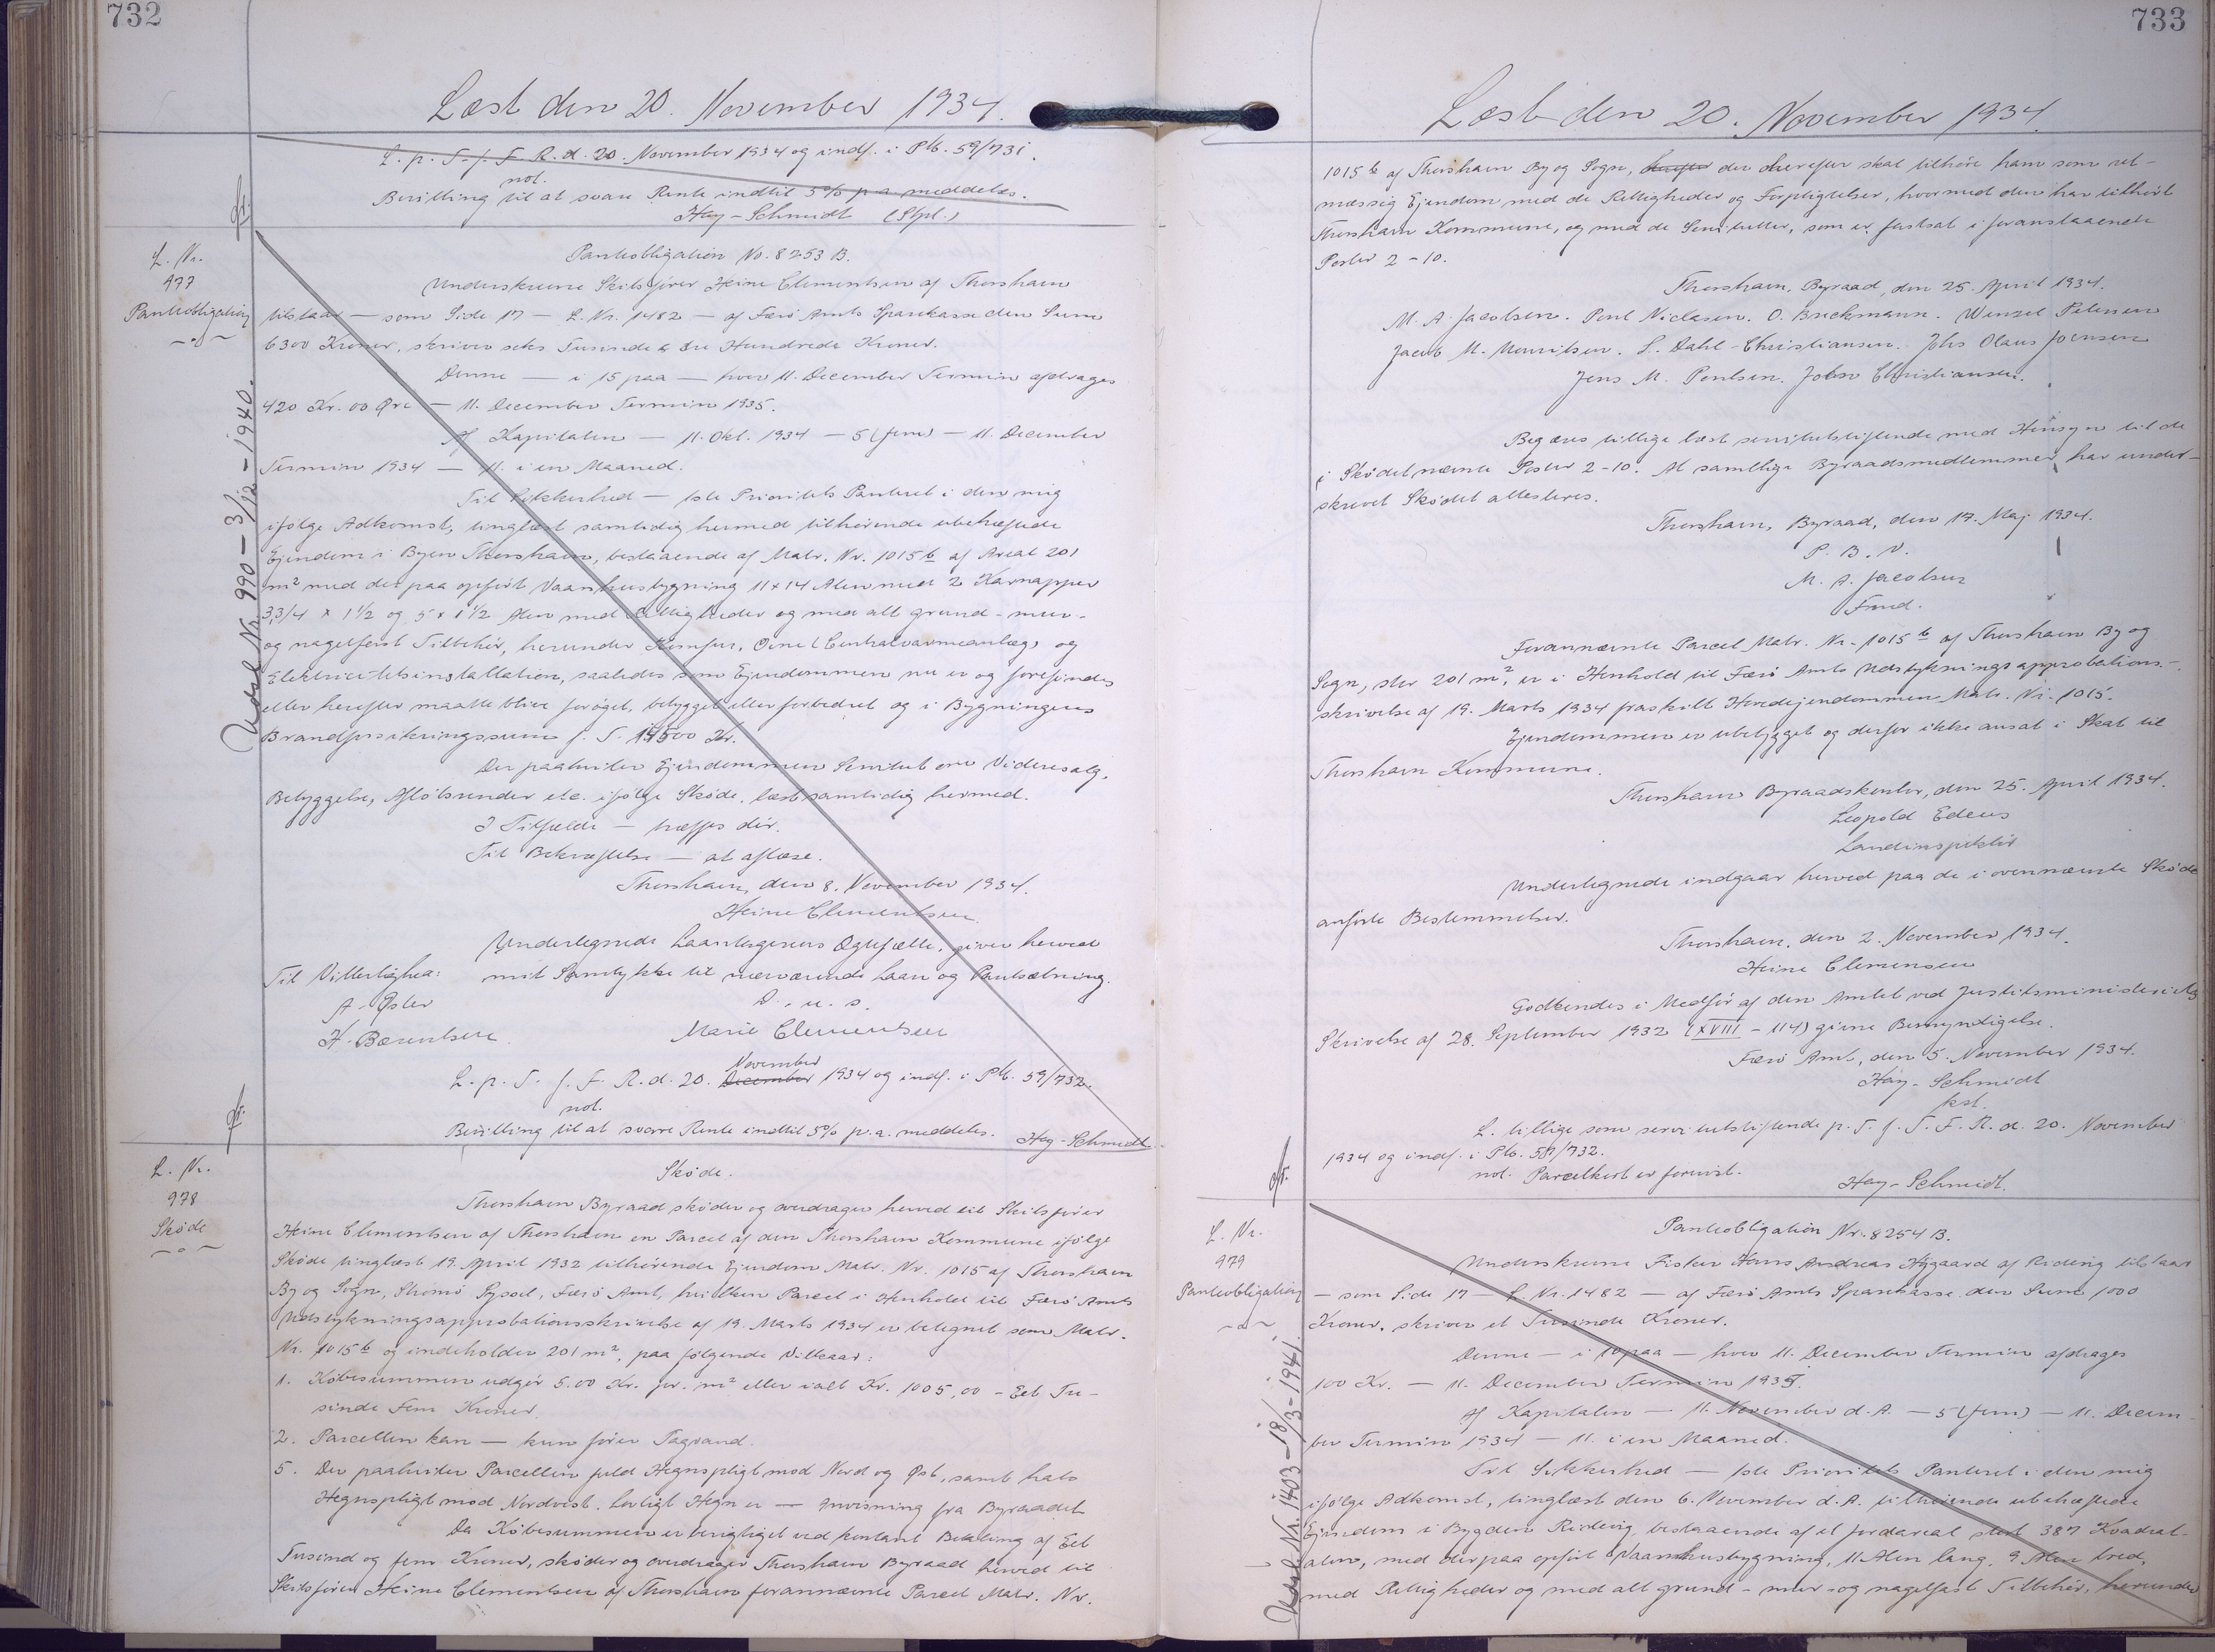 732
Læst den 20. November 1934.
L. p. T. f. F. R. d. 20. November 1934 og indf. i Pb. 59/731.
not.
Bevilling til at svare Rente indtil 5% p. a. meddeles.
Hay-Schmidt (Stpl.)
L. Nr.
977
Pantobligation
Udsl. Nr. 990 - 3/12 - 1940.
Pantobligation No. 8253 B.
Underskrevne Skibsfører Heine Clementsen af Thorshavn
tilstaar — som Side 17 — L. Nr. 1482 — af Færø Amts Sparekasse den Sum
6300 Kroner, skriver seks Tusinde & tre Hundrede Kroner.
Denne — i 15 paa — hver 11. December Termin afdrages
420 Kr. 00 Øre — 11. December Termin 1935.
Af Kapitalen — 11. Okt. 1934 — 5 (fem) — 11. December
Termin 1934 — 11. i en Maaned.
Til Sikkerhed — 1ste Prioritets Panteret i den mig
ifølge Adkomst, tinglæst samtidig hermed tilhørende ubehæftede
Ejendom i Byen Thorshavn, bestaaende af Matr. Nr. 1015 b af Areal 201
m² med der paa opført Vaaningsbygning 11 x 14 Alen med 2 Karnapper
3 3/4 x 1 1/2 og 5 x 1 1/2 Alen med Rettigheder og med alt grund- mur-
og nagelfast Tilbehør, herunder Komfur, Ovne (Centralvarmeanlæg) og
Elektricitetsinstallation, saaledes som Ejendommen nu er og forefindes
eller herefter maatte blive forøget, bebygget eller forbedret og i Bygningens
Brandforsikringssum f. T. 19500 Kr.
Der paahviler Ejendommen Servitut om Videresalg,
Bebyggelse, Afløbsrender etc. ifølge Skøde, læst samtidig hermed.
I Tilfælde — træffes dér.
Til Bekræftelse — at aflæse.
Thorshavn, den 8. November 1934.
Heine Clementsen.
Undertegnede Laantagerens Ægtefælle, giver herved
Til Vitterlighed: mit Samtykke til nærværende Laan og Pantsætning.
A. Øster D. u. s.
K. Bærentsen. Marie Clementsen
November
L. p. T. f. F. R. d. 20. December 1934 og indf. i Pb. 59/732.
not.
Bevilling til at svare Rente indtil 5% p. a. meddeles. Hay-Schmidt
L. Nr.
978
Skøde
Skøde.
Thorshavn Byraad skøder og overdrager herved til Skibsfører
Heine Clementsen af Thorshavn en Parcel af den Thorshavn Kommune ifølge
Skøde tinglæst 19. April 1932 tilhørende Ejendom Matr. Nr. 1015 af Thorshavn
By og Sogn, Strømø Syssel, Færø Amt, hvilken Parcel i Henhold til Færø Amts
Udstykningsapprobationsskrivelse af 19. Marts 1934 er betegnet som Matr.
Nr. 1015 b og indeholder 201 m², paa følgende Vilkaar:
1. Købesummen udgør 5.00 Kr. pr. m² eller ialt Kr. 1005,00 - Eet Tu-
sinde Fem Kroner.
2. Parcellen kan — kun fører Tagvand.
5. Der paahviler Parcellen fuld Hegnspligt mod Nord og Øst, samt halv
Hegnspligt mod Nordvest. Lovligt Hegn er — Anvisning fra Byraadet
Da Købesummen er berigtiget ved kontant Betaling af Eet
Tusind og fem Kroner, skøder og overdrager Thorshavn Byraad herved til
Skibsfører Heine Clementsen af Thorshavn forannævnte Parcel Matr. Nr.
733
Læst den 20. November 1934.
1015 b af Thorshavn By og Sogn, herefter der herefter skal tilhøre ham som ret-
mæssig Ejendom med de Rettigheder og Forpligtelser, hvormed den har tilhørt
Thorshavn Kommune, og med de Servitutter, som er fastsat i foranstaaende
Poster 2 - 10.
Thorshavn, Byraad, den 25. April 1934.
M. A. Jacobsen. Poul Niclasen. O. Brekmann. Wenzel Petersen
Jacob M. Mouritsen. S. Dahl-Christiansen. Johs Olaus Joensen
Jens M. Poulsen. John Christiansen.
Begæres tillige læst servitutstiftende med Hensyn til de
i Skødet nævnte Poster 2-10. At samtlige Byraadsmedlemmer har under-
skrevet Skødet attesteres.
Thorshavn, Byraad, den 17. Maj 1934.
P. B. V.
M. A. Jacobsen
Fmd.
Forannævnte Parcel Matr. Nr. 1015 b af Thorshavn By og
Sogn, stor 201 m², er i Henhold til Færø Amts Udstykningsapprobations-
skrivelse af 19. Marts 1934 fraskilt Hovedejendommen Matr. Nr. 1015.
Ejendommen er ubebygget og derfor ikke ansat i Skat til
Thorshavn Kommune.
Thorshavn Byraadskontor, den 25. April 1934.
Leopold Edens
Landinspektør
Undertegnede indgaar herved paa de i ovennævnte Skøde
anførte Bestemmelser.
Thorshavn, den 2. November 1934.
Heine Clemensen
Godkendes i Medfør af den Amtet ved Justitsministeriets
Skrivelse af 28. September 1932 (XVIII - 114) givne Bemyndigelse.
Færø Amt, den 5. November 1934.
Hay-Schmidt
kst.
L. tillige som servitutstiftende p. T. f. T. F. R. d. 20. November
1934 og indf. i Pb. 59/732.
not. Parcelkort er forevist.
Hay-Schmidt.
L. Nr.
979
Pantobligation
Udsl. Nr. 1403 - 18/3 - 1941.
Pantobligation Nr. 8254 B.
Underskrevne Fisker Hans Andreas Højgaard af Rideviig tilstaar
— som Side 17 — L. Nr. 1482 — af Færø Amts Sparekasse den Sum 1000
Kroner, skriver et Tusinde Kroner.
Denne — i 10 paa — hver 11. December Termin afdrages
100 Kr. — 11. December Termin 1935.
Af Kapitalen — 11. November d. A. — 5 (fem) — 11. Decem-
ber Termin 1934 — 11. i en Maaned.
Til Sikkerhed — 1ste Prioritets Panteret i den mig
ifølge Adkomst, tinglæst den 6. November d. A. tilhørende ubehæftede
Ejendom i Bygden Ridevig, bestaaende af et Jordareal stort 387 Kvadrat-
alen, med derpaa opført Vaaningsbygning, 11 Alen lang, 9 Alen bred,
med Rettigheder og med alt grund- mur- og nagelfast Tilbehør, herunder